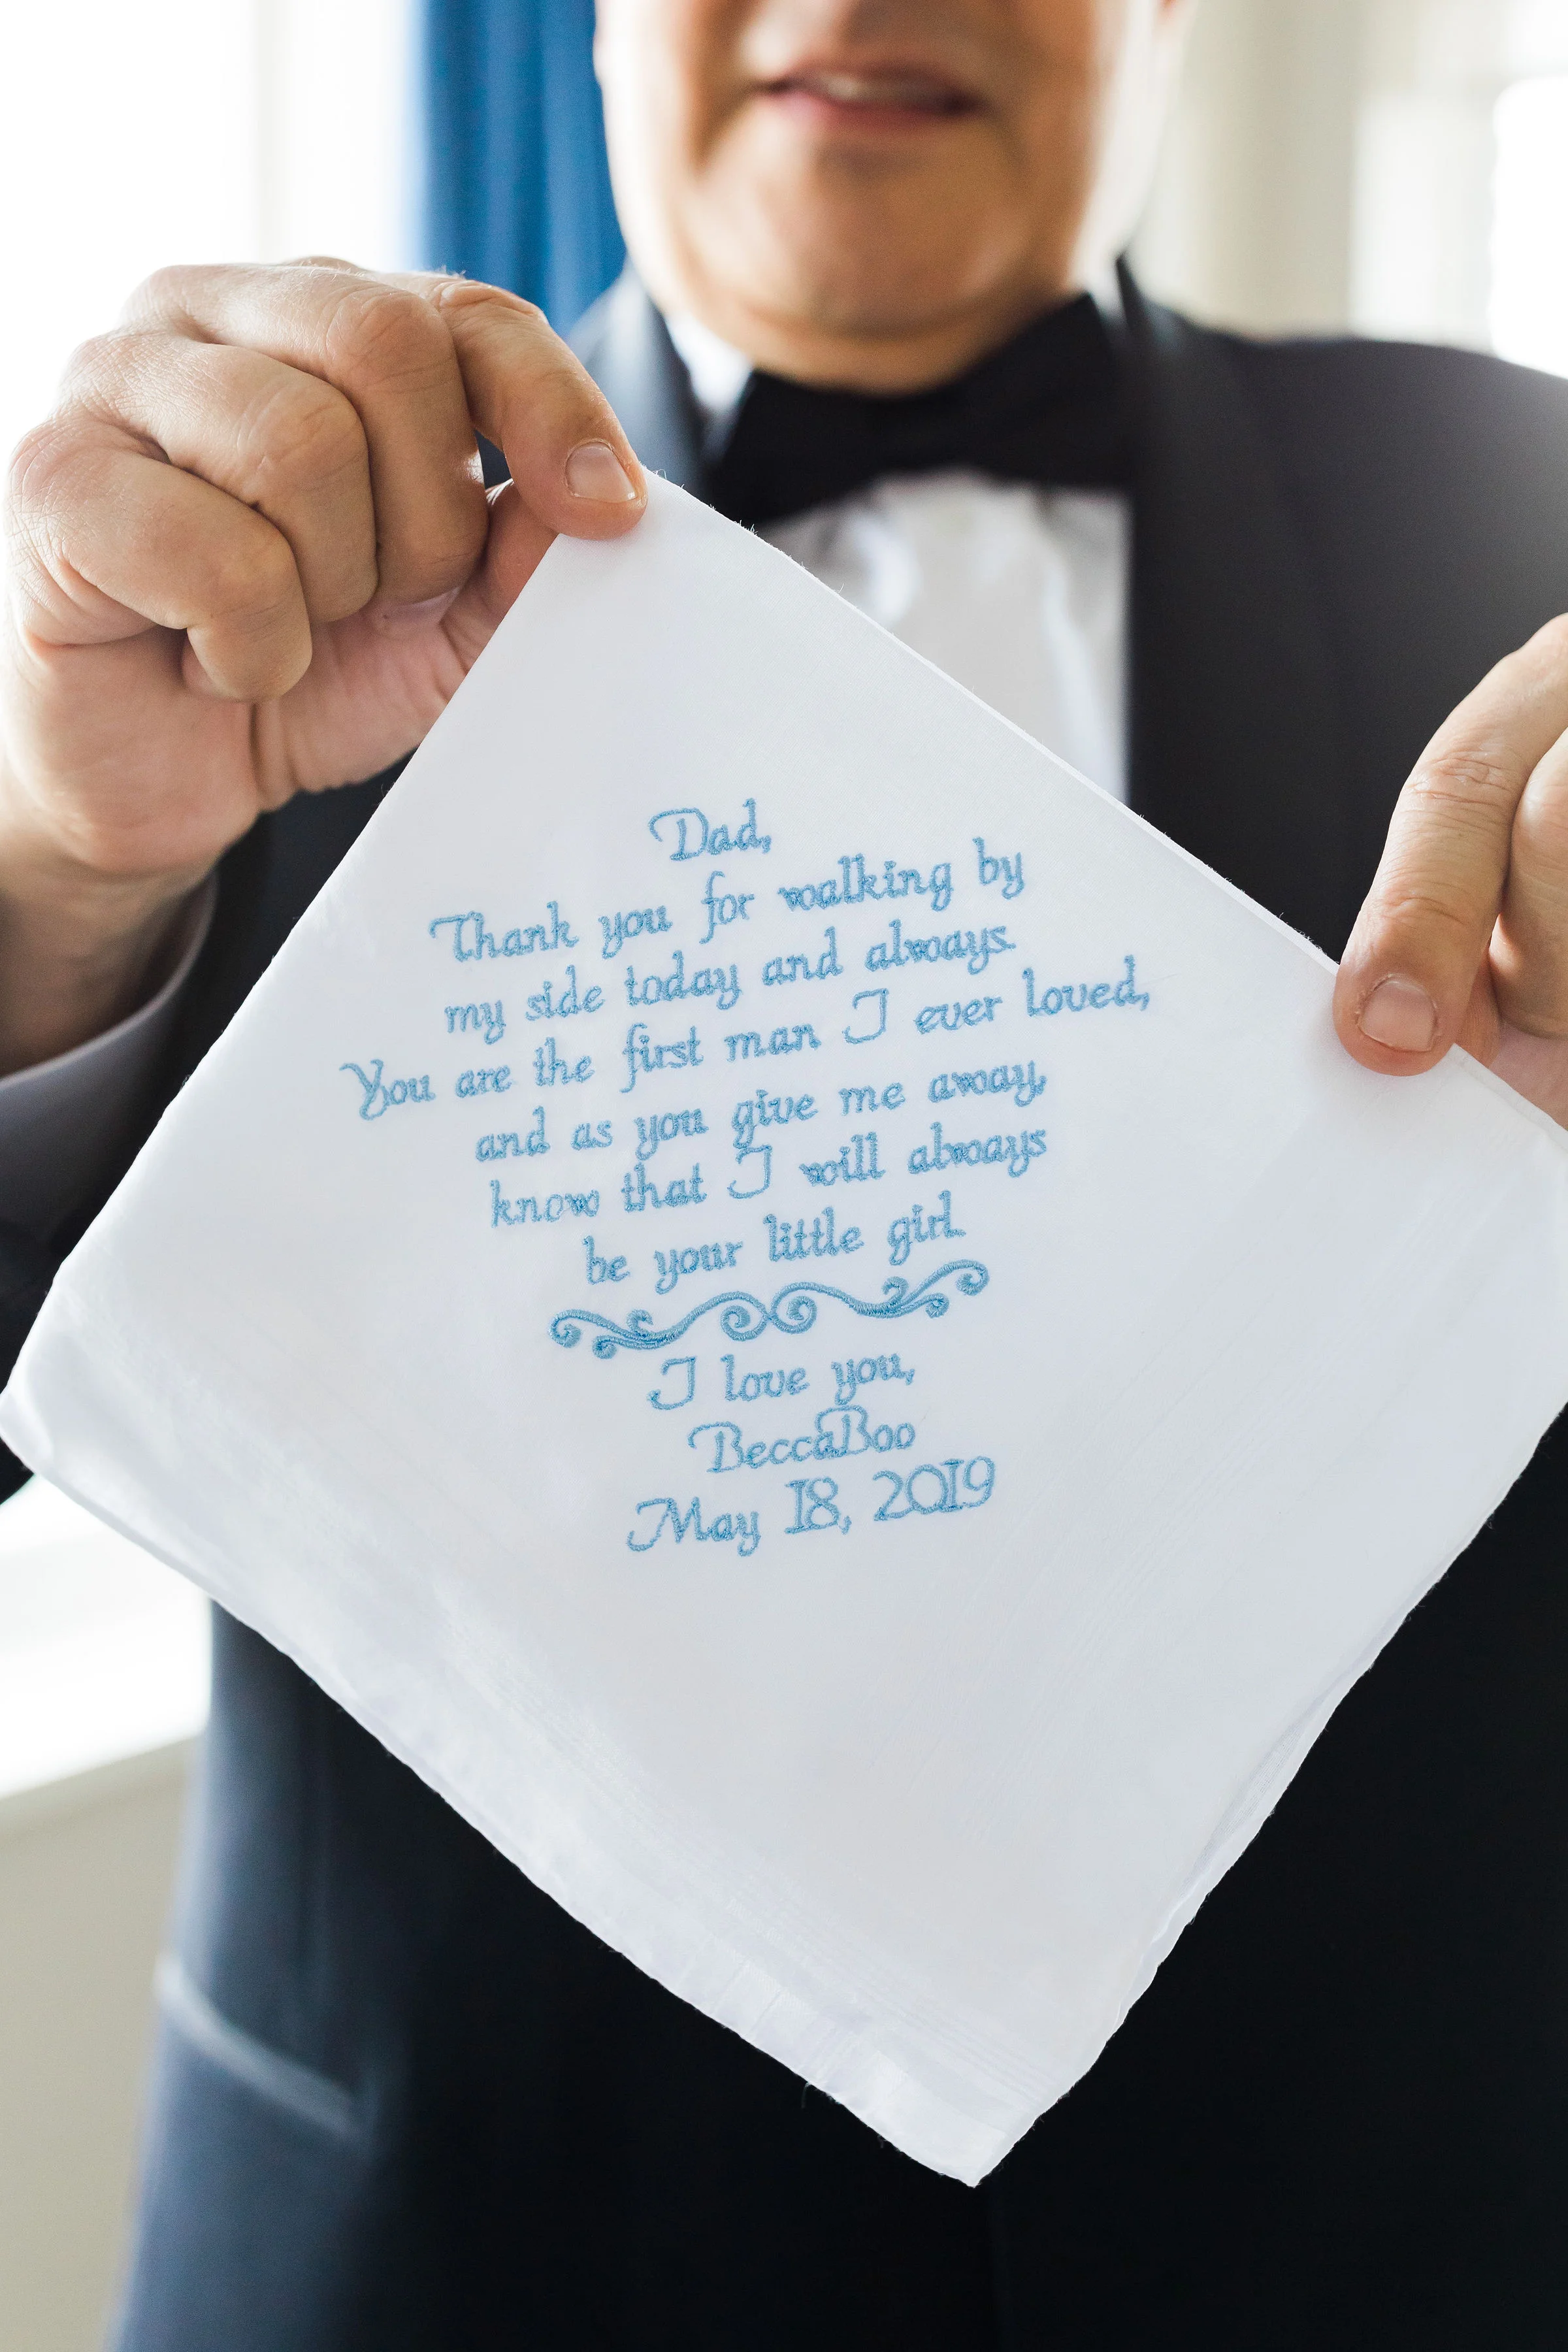 Dad,
Thank you for walking by
my side today and always.
You are the first man I ever loved,
and as you give me away,
know that I will always
be your little girl.
I love you,
BeccaBoo
May 18, 2019